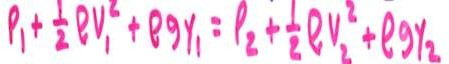 P₁ + ½ ρV₁² + ρgy₁ = P₂ + ½ ρV₂² + ρgy₂